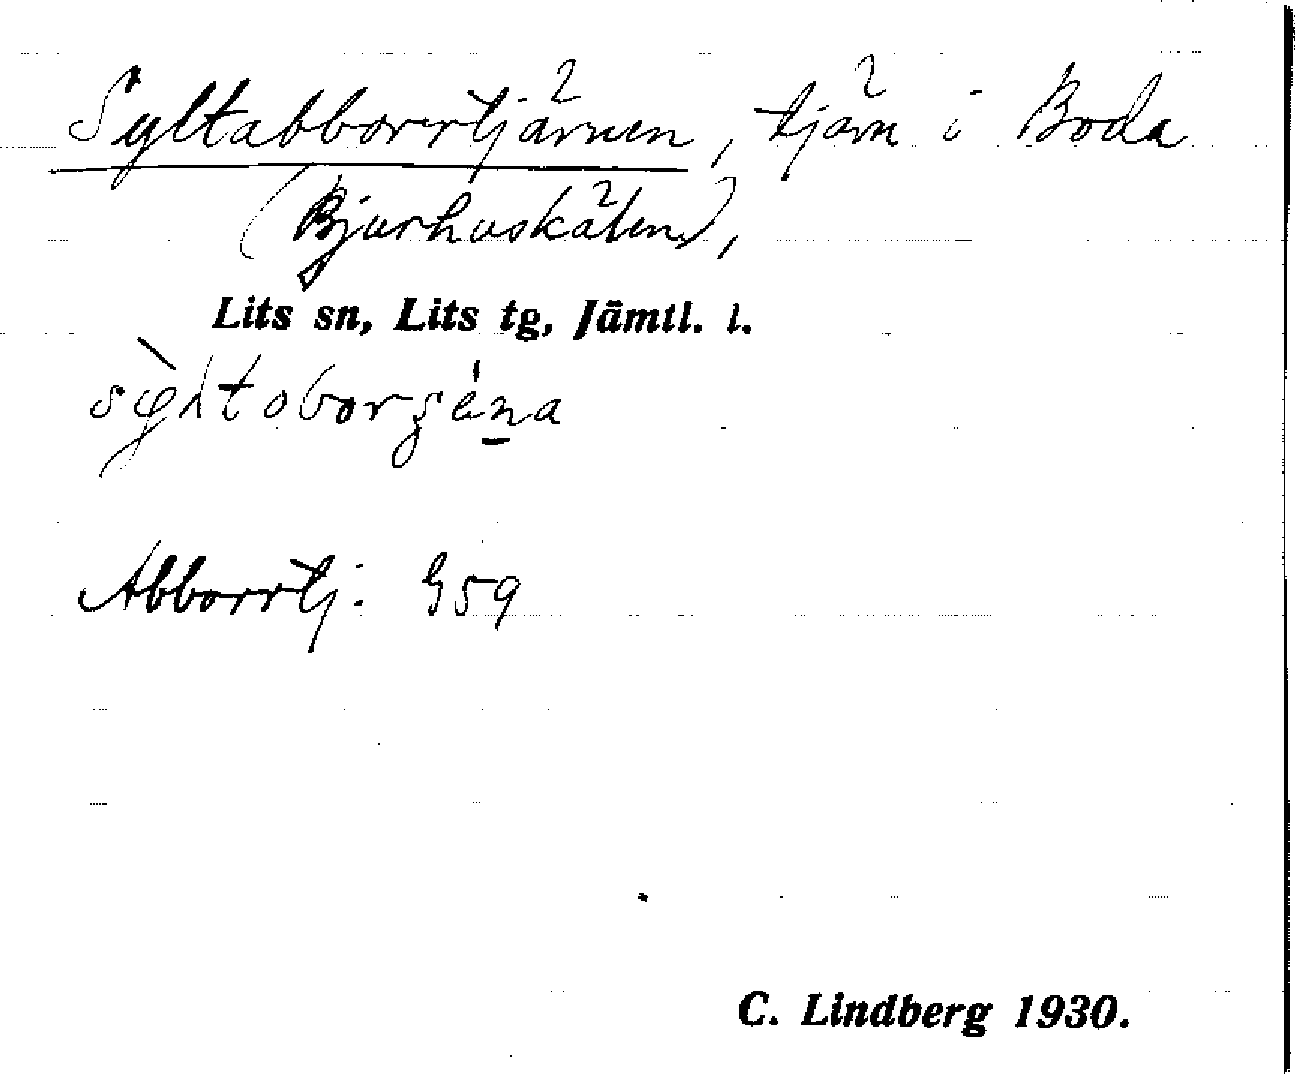 Syltabborrtjärnen, tjärn i Boda
(Bjurhuskälen),
Lits sn, Lits tg, Jämtl. l.
Abborrtj. G59
C. Lindberg 1930.